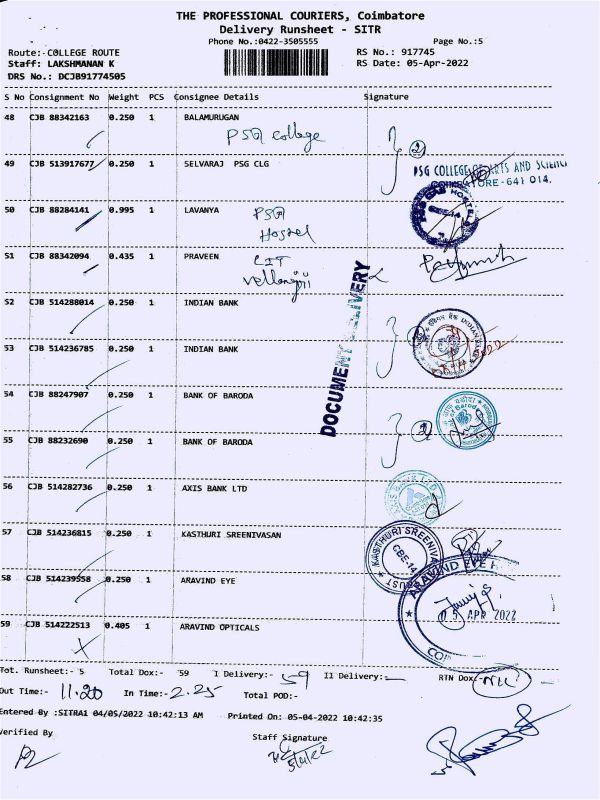 THE PROFESSIONAL COURIERS, Coimbatore
Delivery Runsheet - SITR
Phone No.:0422-3505555 Page No.:5
Route:-COLLEGE ROUTE RS No.: 917745
Staff: LAKSHMANAN K RS Date: 05-Apr-2022
DRS No.: DCJB91774505
S No Consignment No Weight PCS Consignee Details Signature
48 CJB 88342163 0.250 1 BALAMURUGAN
PSG college
2
49 CJB 513917677 0.250 1 SELVARAJ PSG CLG
PSG COLLEGE OF ARTS AND SCIENCE
COIMBATORE-641 014.
50 CJB 88284141 0.995 1 LAVANYA PSG
Hostel
51 CJB 88342094 0.435 1 PRAVEEN CIT
DOCUMENT DELIVERY
52 CJB 514288014 0.250 1 INDIAN BANK
53 CJB 514236785 0.250 1 INDIAN BANK
54 CJB 88247907 0.250 1 BANK OF BARODA
55 CJB 88232690 0.250 1 BANK OF BARODA
2
56 CJB 514282736 0.250 1 AXIS BANK LTD
AXIS BANK LTD
57 CJB 514236815 0.250 1 KASTHURI SREENIVASAN
KASTHURI SREENIVA
CBE-14
TRUST
58 CJB 514239558 0.250 1 ARAVIND EYE
ARAVIND EYE H
05 APR 2022
59 CJB 514222513 0.405 1 ARAVIND OPTICALS
Tot. Runsheet:- 5 Total Dox:- 59 I Delivery:- 59 II Delivery:- RTN Dox:- NIL
Out Time:- 11.20 In Time:- 2.25 Total POD:-
Entered By :SITRA1 04/05/2022 10:42:13 AM Printed On: 05-04-2022 10:42:35
Verified By Staff Signature
5/4/22